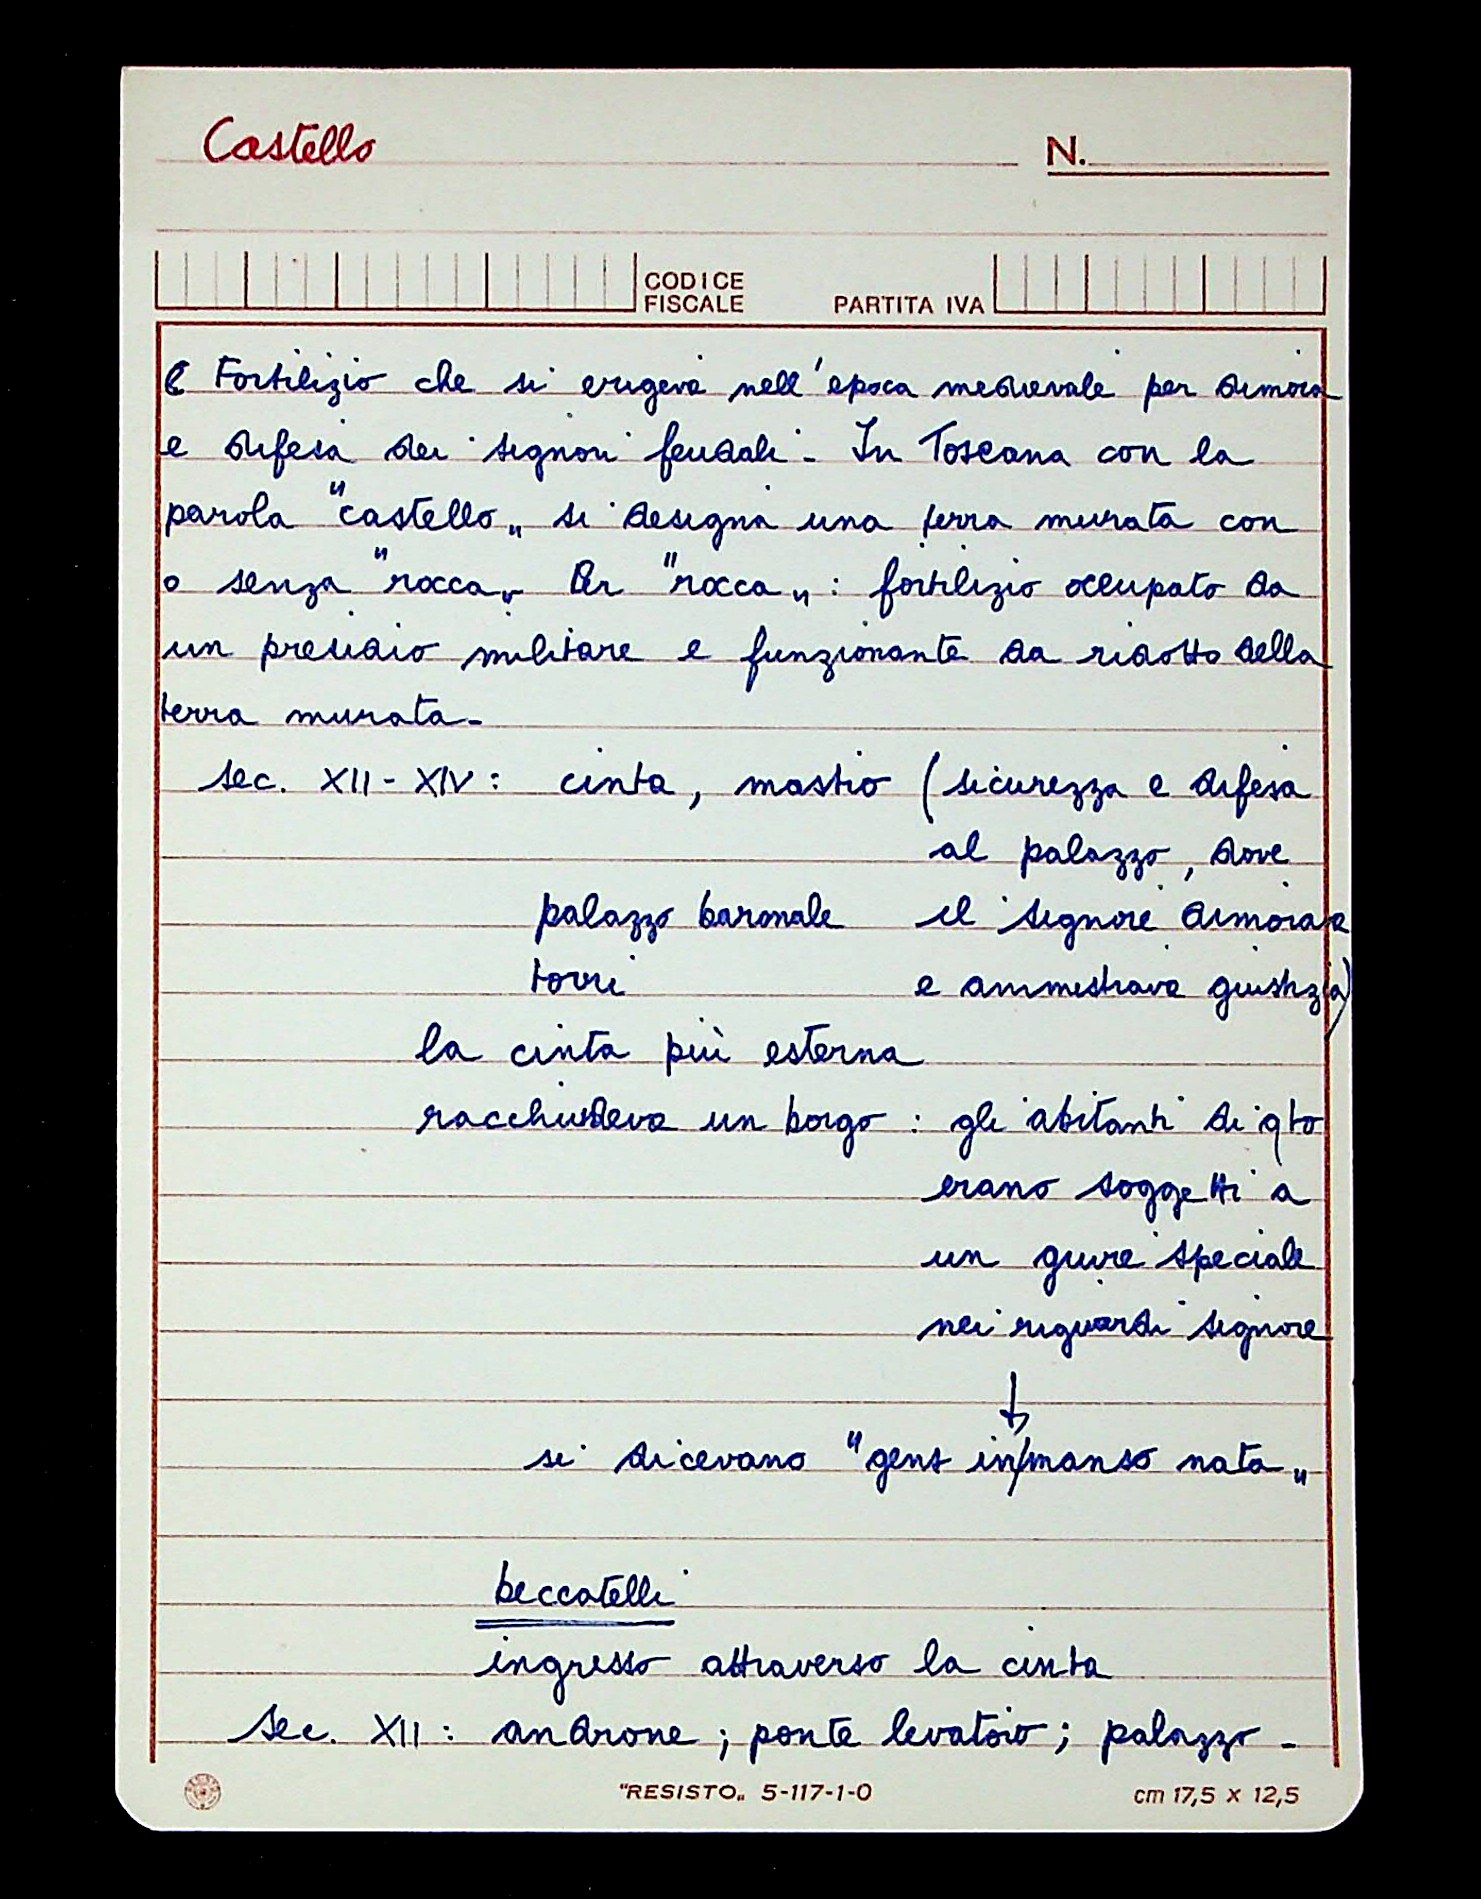 Castello
N.
CODICE
FISCALE
PARTITA IVA
È Fortilizio che si erigeva nell'epoca medievale per dimora
e difesa dei signori feudali. In Toscana con la
parola "castello" si designa una terra murata con
o senza "rocca". Per "rocca": fortilizio occupato da
un presidio militare e funzionante da ridotto della
terra murata.
sec. XII - XIV: cinta, mastio (sicurezza e difesa
al palazzo, dove
palazzo baronale il signore dimorava
torri e ammistrava giustizia)
la cinta più esterna
racchiudeva un borgo : gli abitanti di qto
erano soggetti a
un giure speciale
nei riguardi signore
↓
si dicevano "gens in/manso nata"
beccatelli
ingresso attraverso la cinta
Sec. XII: androne; ponte levatoio; palazzo -
"RESISTO" 5-117-1-0
cm 17,5 x 12,5